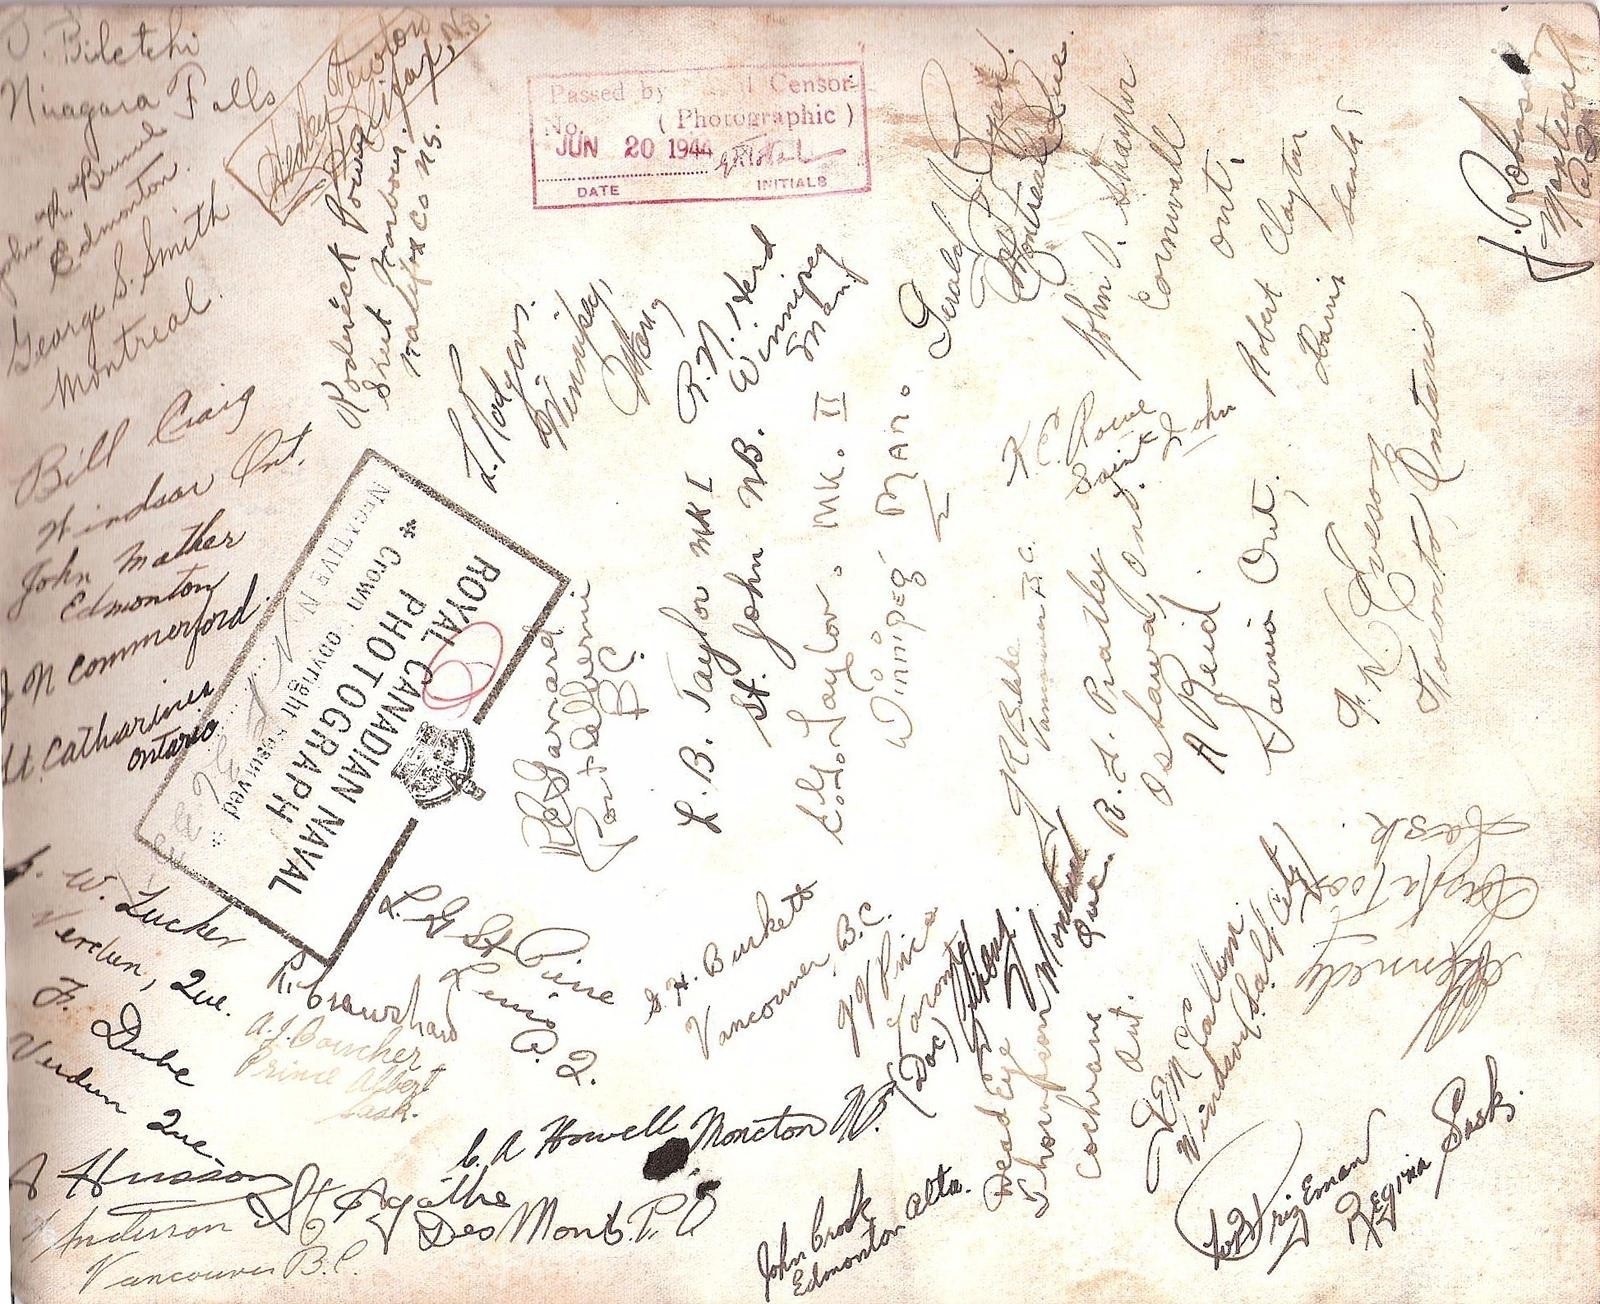 J. Biletchi
Niagara Falls
John R. Brunel
Edmonton.
George S. Smith
Montreal.
Bill Craig
Windsor Ont.
John Mather
Edmonton
J N Commerford
St. Catharines
Ontario
Hedley Newton
Halifax, N.S.
Roderick Power
Sheet Harbour,
Halifax Co NS.
Passed by Censor
No. ( Photographic )
JUN 20 1944
DATE INITIALS
ROYAL CANADIAN NAVAL
PHOTOGRAPH
* Crown Copyright Reserved *
NEGATIVE N
L. Rodgers.
Winnipeg,
Man,
R.N. Herd
Winnipeg
Man,
L. B. Taylor MK I
St. John NB.
Taylor. MK. II
Winnipeg MAN.
Garrard
Port Alberni
B.C.
Gerald J Ryan.
Montreal Que.
John P. Sharpe
Cornwall
Ont.
Robert Clayton
Saults
J. Robins
Montreal
K.C. Rowe
Saint John
J R Blake
Vancouver B.C.
B. J. Pratley
Oshawa, Ont.
A Reid
Sarnia Ont.
Toronto Ontario
W. Tucker
Verdun, Que.
F. Dube
Verdun Que.
R. Crawshaw
A.J. Boucher
Prince Albert
Sask.
L. G St Pierre
Levis
P. Q.
J Husson
St Agathe
Des Monts. P. Q
Anderson
Vancouver B.C.
C A Howell Moncton N.B.
John Crook
Edmonton Alta.
G. H. Burkett
Vancouver, B.C.
Price
Toronto
(Doc)
Montreal
Que.
Dead Eye
Thompson
Cochrane
Ont.
Windsor (Salt City)
Kennedy
Saskatoon
Sask.
Prizeman
Regina Sask.